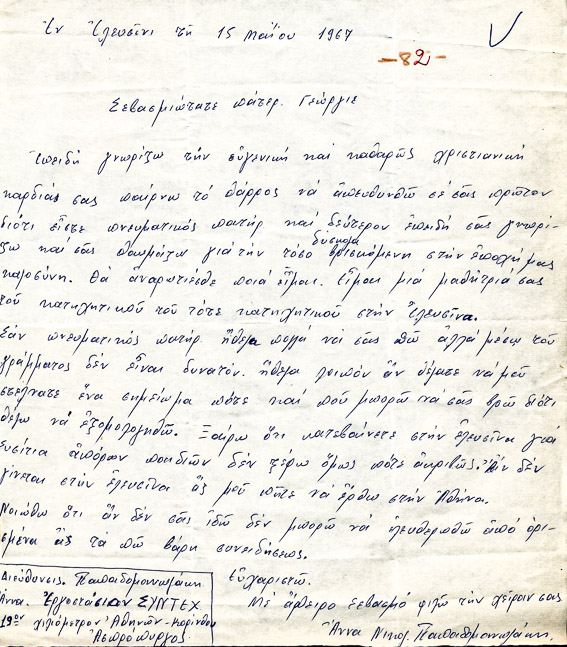 Ἐν Ἐλευσῖνι τῇ 15 Μαΐου 1967
-82-
Σεβασμιώτατε πάτερ. Γεώργιε
Ἐπειδή γνωρίζω τήν εὐγενική καί καθαρῶς χριστιανική
καρδιάς σας παίρνω τό θάρρος νά ἀπευθυνθῶ σέ σᾶς πρῶτον
διότι εἶστε πνευματικός πατήρ καί δεύτερον ἐπειδή σᾶς γνωρί-
ζω καί σᾶς θαυμάζω γιά τήν τόσο δύσκολα βρισκόμενη στήν ἐποχή μας
καλοσύνη. Θά ἀναρωτιέσθε ποιά εἶμαι. Εἶμαι μιά μαθήτριά σας
τοῦ κατηχητικοῦ τοῦ τότε κατηχητικοῦ στήν Ἐλευσῖνα.
Σάν πνευματικός πατήρ ἤθελα πολλά νά σᾶς πῶ ἀλλά μέσῳ τοῦ
γράμματος δέν εἶναι δυνατόν. ἤθελα λοιπόν ἄν θέλατε νά μοῦ
στέλνατε ἕνα σημείωμα πότε καί ποῦ μπορῶ νά σᾶς βρῶ διότι
θέλω νά ἐξομολογηθῶ. Ξαίρω ὅτι κατεβαίνετε στήν ἐλευσῖνα γιά
συσίτια ἀπόρων παιδιῶν δέν ξέρω ὅμως πότε ἀκριβῶς. Ἄν δέν
γίνεται στήν ἐλευσῖνα ἄς μοῦ πῆτε νά ἔρθω στήν Ἀθήνα.
Νοιώθω ὅτι ἄν δέν σᾶς ἰδῶ δέν μπορῶ νά ἐλευθερωθῶ ἀπό ὁρι-
σμένα ἄς τά πῶ βάρη συνειδήσεως.
Εὐχαριστῶ.
Μέ ἄπειρο σεβασμό φιλῶ τήν χεῖραν σας
Ἄννα Νικολ. Παπαδομανωλάκη.
Διεύθυνσις. Παπαδομανωλάκη
Ἄννα. Ἐργοστάσιον ΣΥΝΤΕΧ
19ον χιλιόμετρον Ἀθηνῶν-Κορίνθου
Ἀσπρόπυργος.